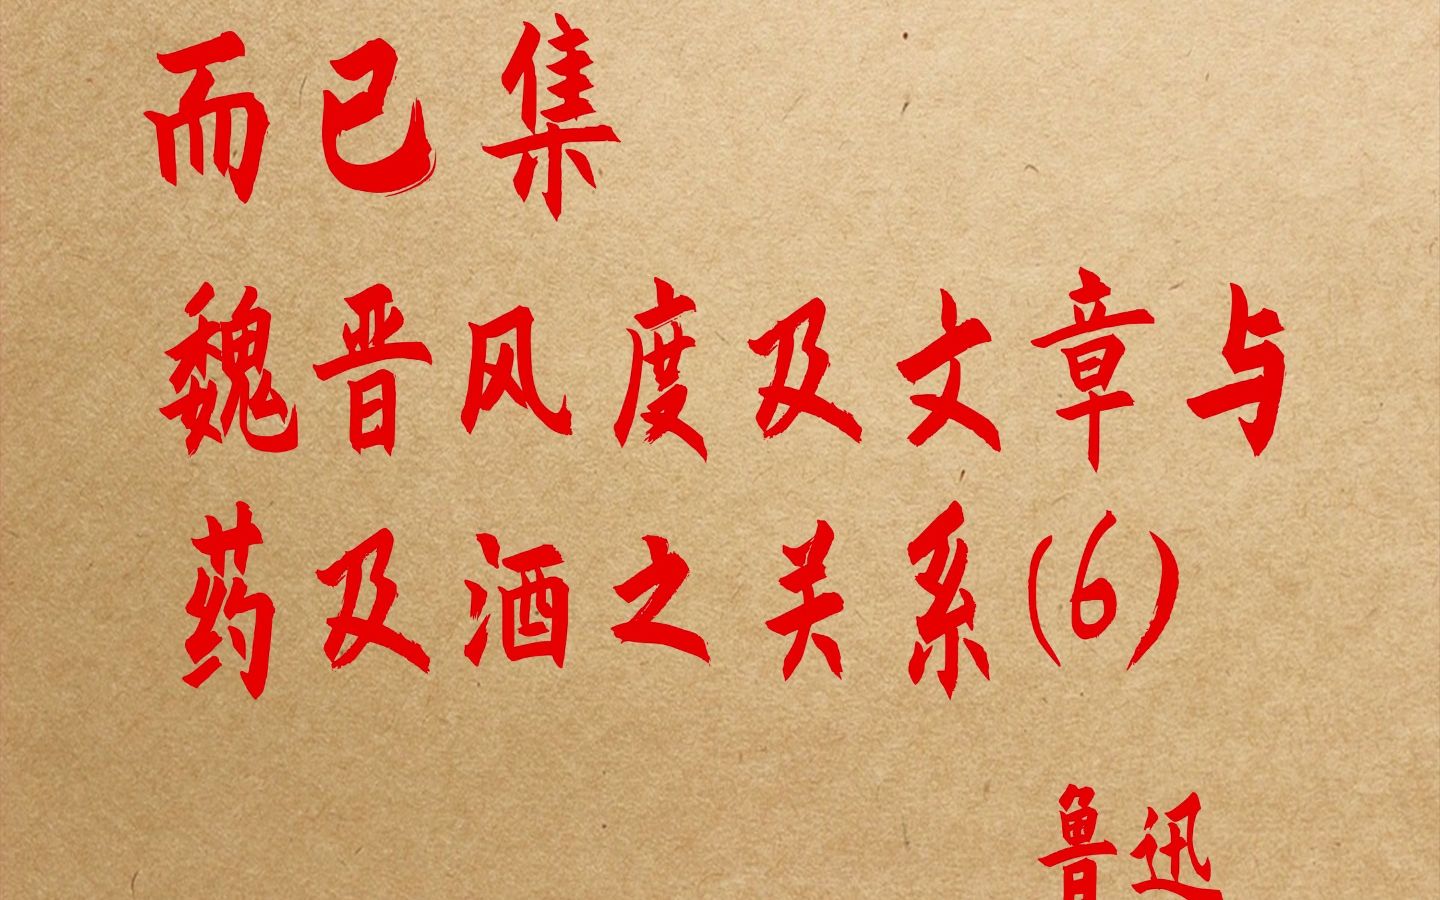 而已集
魏晋风度及文章与
药及酒之关系(6)
鲁迅